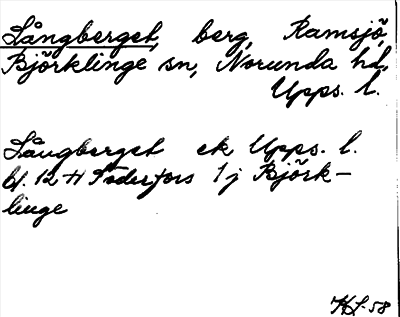 Långberget, berg, Ramsjö,
Björklinge sn, Norunda hd,
Upps. l.
Långberget ek Upps. l.
bl. 12 H Söderfors 1j Björk-
linge
HS-58